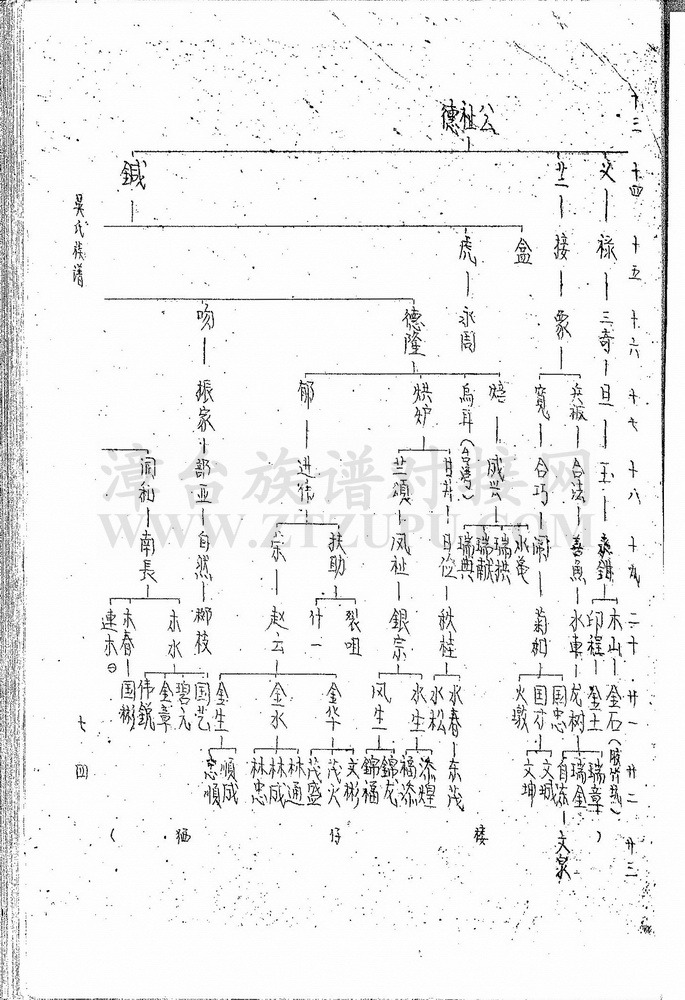 十三
十四
十五
十六
十七
十八
十九
二十
廿一
廿二
廿三
德祉公
义
禄
三奇
旦
玉
木山
金石
印程
金土
瑞章
瑞金
兰
接
象
兵板
合法
善魚
水東
龙树
自添
文泉
国忠
寛
合巧
菊如
国才
文城
文坤
火墩
盒
虎
永周
鍼
德隆
焙
成兴
水亀
瑞拱
瑞献
瑞典
烏耳(台湾)
烘炉
甘井
日位
秩桂
水春
东茂
水松
兰頌
凤祉
銀宗
水生
添煌
福添
凤生
錦龙
錦福
郁
进伟
扶助
裂咀
什一
宗
赵云
金华
文彬
茂火
茂盛
金水
林通
林成
林忠
金生
順成
忠順
吻
振家
部亚
自然
椰枝
国艺
碧元
金章
伟鋭
闹和
南長
木水
木春
国彬
連木
吴氏族谱
七四
(栖仔楼)
漳台族谱对接网
WWW.ZTZUPU.COM